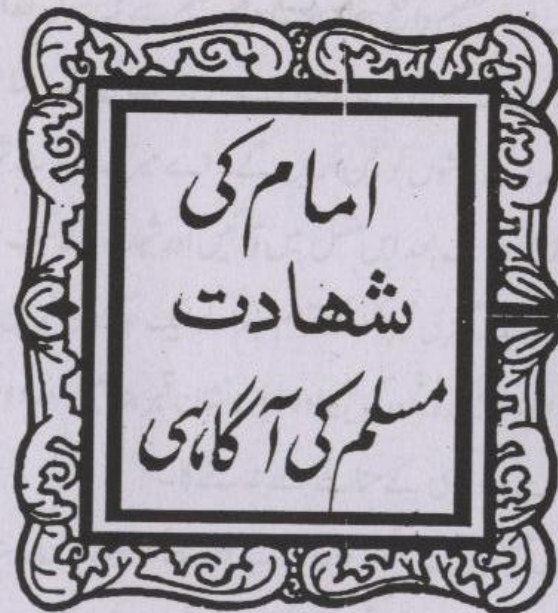 امام کی
شہادت
مسلم کی آگاہی